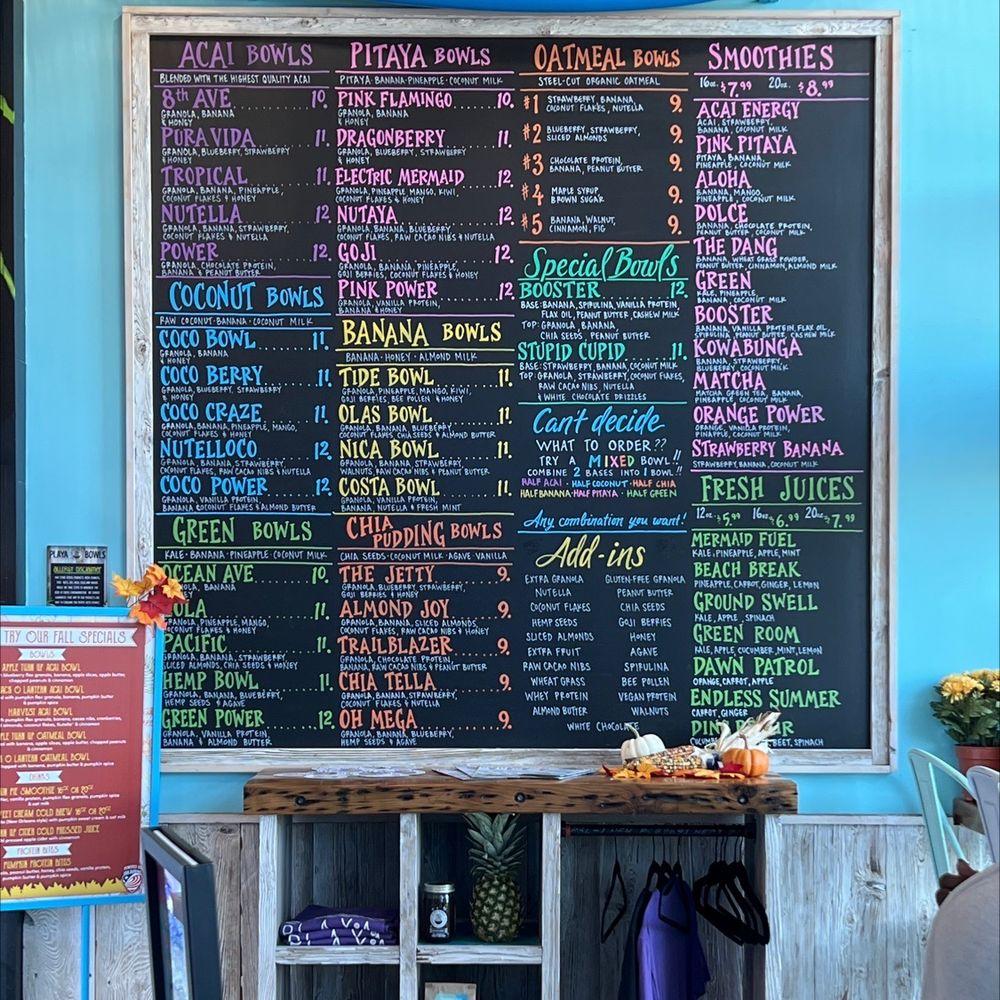 ACAI BOWLS
BLENDED WITH THE HIGHEST QUALITY ACAI
8th AVE 10.
GRANOLA, BANANA
& HONEY
PURA VIDA 11.
GRANOLA, BLUEBERRY, STRAWBERRY
& HONEY
TROPICAL 11.
GRANOLA, BANANA, PINEAPPLE,
COCONUT FLAKES & HONEY
NUTELLA 12.
GRANOLA, BANANA, STRAWBERRY,
COCONUT FLAKES & NUTELLA
POWER 12.
GRANOLA, CHOCOLATE PROTEIN,
BANANA & PEANUT BUTTER
COCONUT BOWLS
RAW COCONUT · BANANA · COCONUT MILK
COCO BOWL 11.
GRANOLA, BANANA
& HONEY
COCO BERRY 11.
GRANOLA, BLUEBERRY, STRAWBERRY
& HONEY
COCO CRAZE 11.
GRANOLA, BANANA, PINEAPPLE, MANGO,
COCONUT FLAKES & HONEY
NUTELLOCO 12.
GRANOLA, BANANA, STRAWBERRY,
COCONUT FLAKES, RAW CACAO NIBS & NUTELLA
COCO POWER 12.
GRANOLA, VANILLA PROTEIN,
BANANA COCONUT FLAKES & ALMOND BUTTER
GREEN BOWLS
KALE · BANANA · PINEAPPLE · COCONUT MILK
OCEAN AVE 10.
GRANOLA, BANANA
OLA 11.
GRANOLA, PINEAPPLE, MANGO,
COCONUT FLAKES & HONEY
PACIFIC 11.
GRANOLA, BANANA, STRAWBERRY
SLICED ALMONDS, CHIA SEEDS & HONEY
HEMP BOWL 11.
GRANOLA, BANANA, BLUEBERRY,
HEMP SEEDS & AGAVE
GREEN POWER 12.
GRANOLA, VANILLA PROTEIN,
BANANA & ALMOND BUTTER
PITAYA BOWLS
PITAYA · BANANA · PINEAPPLE · COCONUT MILK
PINK FLAMINGO 10.
GRANOLA, BANANA
& HONEY
DRAGONBERRY 11.
GRANOLA, BLUEBERRY, STRAWBERRY
& HONEY
ELECTRIC MERMAID 12.
GRANOLA, PINEAPPLE, MANGO, KIWI,
COCONUT FLAKES & HONEY
NUTAYA 12.
GRANOLA, BANANA, BLUEBERRY
COCONUT FLAKES, RAW CACAO NIBS & NUTELLA
GOJI 12.
GRANOLA, BANANA, PINEAPPLE,
GOJI BERRIES, COCONUT FLAKES & HONEY
PINK POWER 12.
GRANOLA, VANILLA PROTEIN,
BANANA & HONEY
BANANA BOWLS
BANANA · HONEY · ALMOND MILK
TIDE BOWL 11.
GRANOLA, PINEAPPLE, MANGO, KIWI,
GOJI BERRIES, BEE POLLEN & HONEY
OLAS BOWL 11.
GRANOLA, BANANA, BLUEBERRY
COCONUT FLAKES CHIA SEEDS & ALMOND BUTTER
NICA BOWL 11.
GRANOLA, BANANA, STRAWBERRY
WALNUTS, RAW CACAO NIBS & PEANUT BUTTER
COSTA BOWL 11.
GRANOLA, VANILLA PROTEIN,
BANANA, NUTELLA & FRESH MINT
CHIA PUDDING BOWLS
CHIA SEEDS · COCONUT MILK · AGAVE VANILLA
THE JETTY 9.
GRANOLA, BLUEBERRY STRAWBERRY,
GOJI BERRIES & HONEY
ALMOND JOY 9.
GRANOLA, BANANA, SLICED ALMONDS,
COCONUT FLAKES, RAW CACAO NIBS & HONEY
TRAILBLAZER 9.
GRANOLA, CHOCOLATE PROTEIN,
BANANA, RAW CACAO NIBS & PEANUT BUTTER
CHIA TELLA 9.
GRANOLA, BANANA, STRAWBERRY,
COCONUT FLAKES & NUTELLA
OH MEGA 9.
GRANOLA, BANANA, BLUEBERRY,
HEMP SEEDS & AGAVE
OATMEAL BOWLS
STEEL-CUT ORGANIC OATMEAL
#1 STRAWBERRY, BANANA, 9.
COCONUT FLAKES, NUTELLA
#2 BLUEBERRY, STRAWBERRY, 9.
SLICED ALMONDS
#3 CHOCOLATE PROTEIN, 9.
BANANA, PEANUT BUTTER
#4 MAPLE SYRUP 9.
BROWN SUGAR
#5 BANANA, WALNUT, 9.
CINNAMON, FIG
Special Bowls
BOOSTER 12.
BASE: BANANA, SPIRULINA, VANILLA PROTEIN,
FLAX OIL, PEANUT BUTTER, CASHEW MILK
TOP: GRANOLA, BANANA,
CHIA SEEDS, PEANUT BUTTER
STUPID CUPID 11.
BASE: STRAWBERRY, BANANA, COCONUT MILK
TOP: GRANOLA, STRAWBERRY, COCONUT FLAKES,
RAW CACAO NIBS, NUTELLA
& WHITE CHOCOLATE DRIZZLES
Can't decide
WHAT TO ORDER??
TRY A MIXED BOWL!!
COMBINE 2 BASES INTO 1 BOWL!!
HALF ACAI · HALF COCONUT · HALF CHIA
HALF BANANA · HALF PITAYA · HALF GREEN
Any combination you want!
Add-ins
EXTRA GRANOLA GLUTEN-FREE GRANOLA
NUTELLA PEANUT BUTTER
COCONUT FLAKES CHIA SEEDS
HEMP SEEDS GOJI BERRIES
SLICED ALMONDS HONEY
EXTRA FRUIT AGAVE
RAW CACAO NIBS SPIRULINA
WHEAT GRASS BEE POLLEN
WHEY PROTEIN VEGAN PROTEIN
ALMOND BUTTER WALNUTS
WHITE CHOCOLATE
SMOOTHIES
16oz. $7.99 20oz. $8.99
ACAI ENERGY
ACAI, STRAWBERRY,
BANANA, COCONUT MILK
PINK PITAYA
PITAYA, BANANA,
PINEAPPLE, COCONUT MILK
ALOHA
BANANA, MANGO,
PINEAPPLE, COCONUT MILK
DOLCE
BANANA, CHOCOLATE PROTEIN,
PEANUT BUTTER, COCONUT MILK
THE DANG
BANANA, WHEAT GRASS POWDER,
PEANUT BUTTER, CINNAMON, ALMOND MILK
GREEN
KALE, PINEAPPLE,
BANANA, COCONUT MILK
BOOSTER
BANANA, VANILLA PROTEIN, FLAX OIL,
SPIRULINA, PEANUT BUTTER, CASHEW MILK
KOWABUNGA
BANANA, STRAWBERRY,
BLUEBERRY, COCONUT MILK
MATCHA
MATCHA GREEN TEA, BANANA,
PINEAPPLE, COCONUT MILK
ORANGE POWER
ORANGE, VANILLA PROTEIN,
PINEAPPLE, COCONUT MILK
STRAWBERRY BANANA
STRAWBERRY, BANANA, COCONUT MILK
FRESH JUICES
12oz. $5.99 16oz. $6.99 20oz. $7.99
MERMAID FUEL
KALE, PINEAPPLE, APPLE, MINT
BEACH BREAK
PINEAPPLE, CARROT, GINGER, LEMON
GROUND SWELL
KALE, APPLE, SPINACH
GREEN ROOM
KALE, APPLE, CUCUMBER, MINT, LEMON
DAWN PATROL
ORANGE, CARROT, APPLE
ENDLESS SUMMER
CARROT, GINGER
BEET, SPINACH
PLAYA BOWLS
ALLERGY DISCLAIMER
TRY OUR FALL SPECIALS
BOWLS
APPLE TURN UP ACAI BOWL
O LANTERN ACAI BOWL
HARVEST ACAI BOWL
OATMEAL BOWL
O LANTERN OATMEAL BOWL
DRINKS
ME SMOOTHIE 16OZ OR 20OZ
CREAM COLD BREW 16OZ OR 20OZ
CIDER COLD PRESSED JUICE
PROTEIN BITES
PUMPKIN PROTEIN BITES